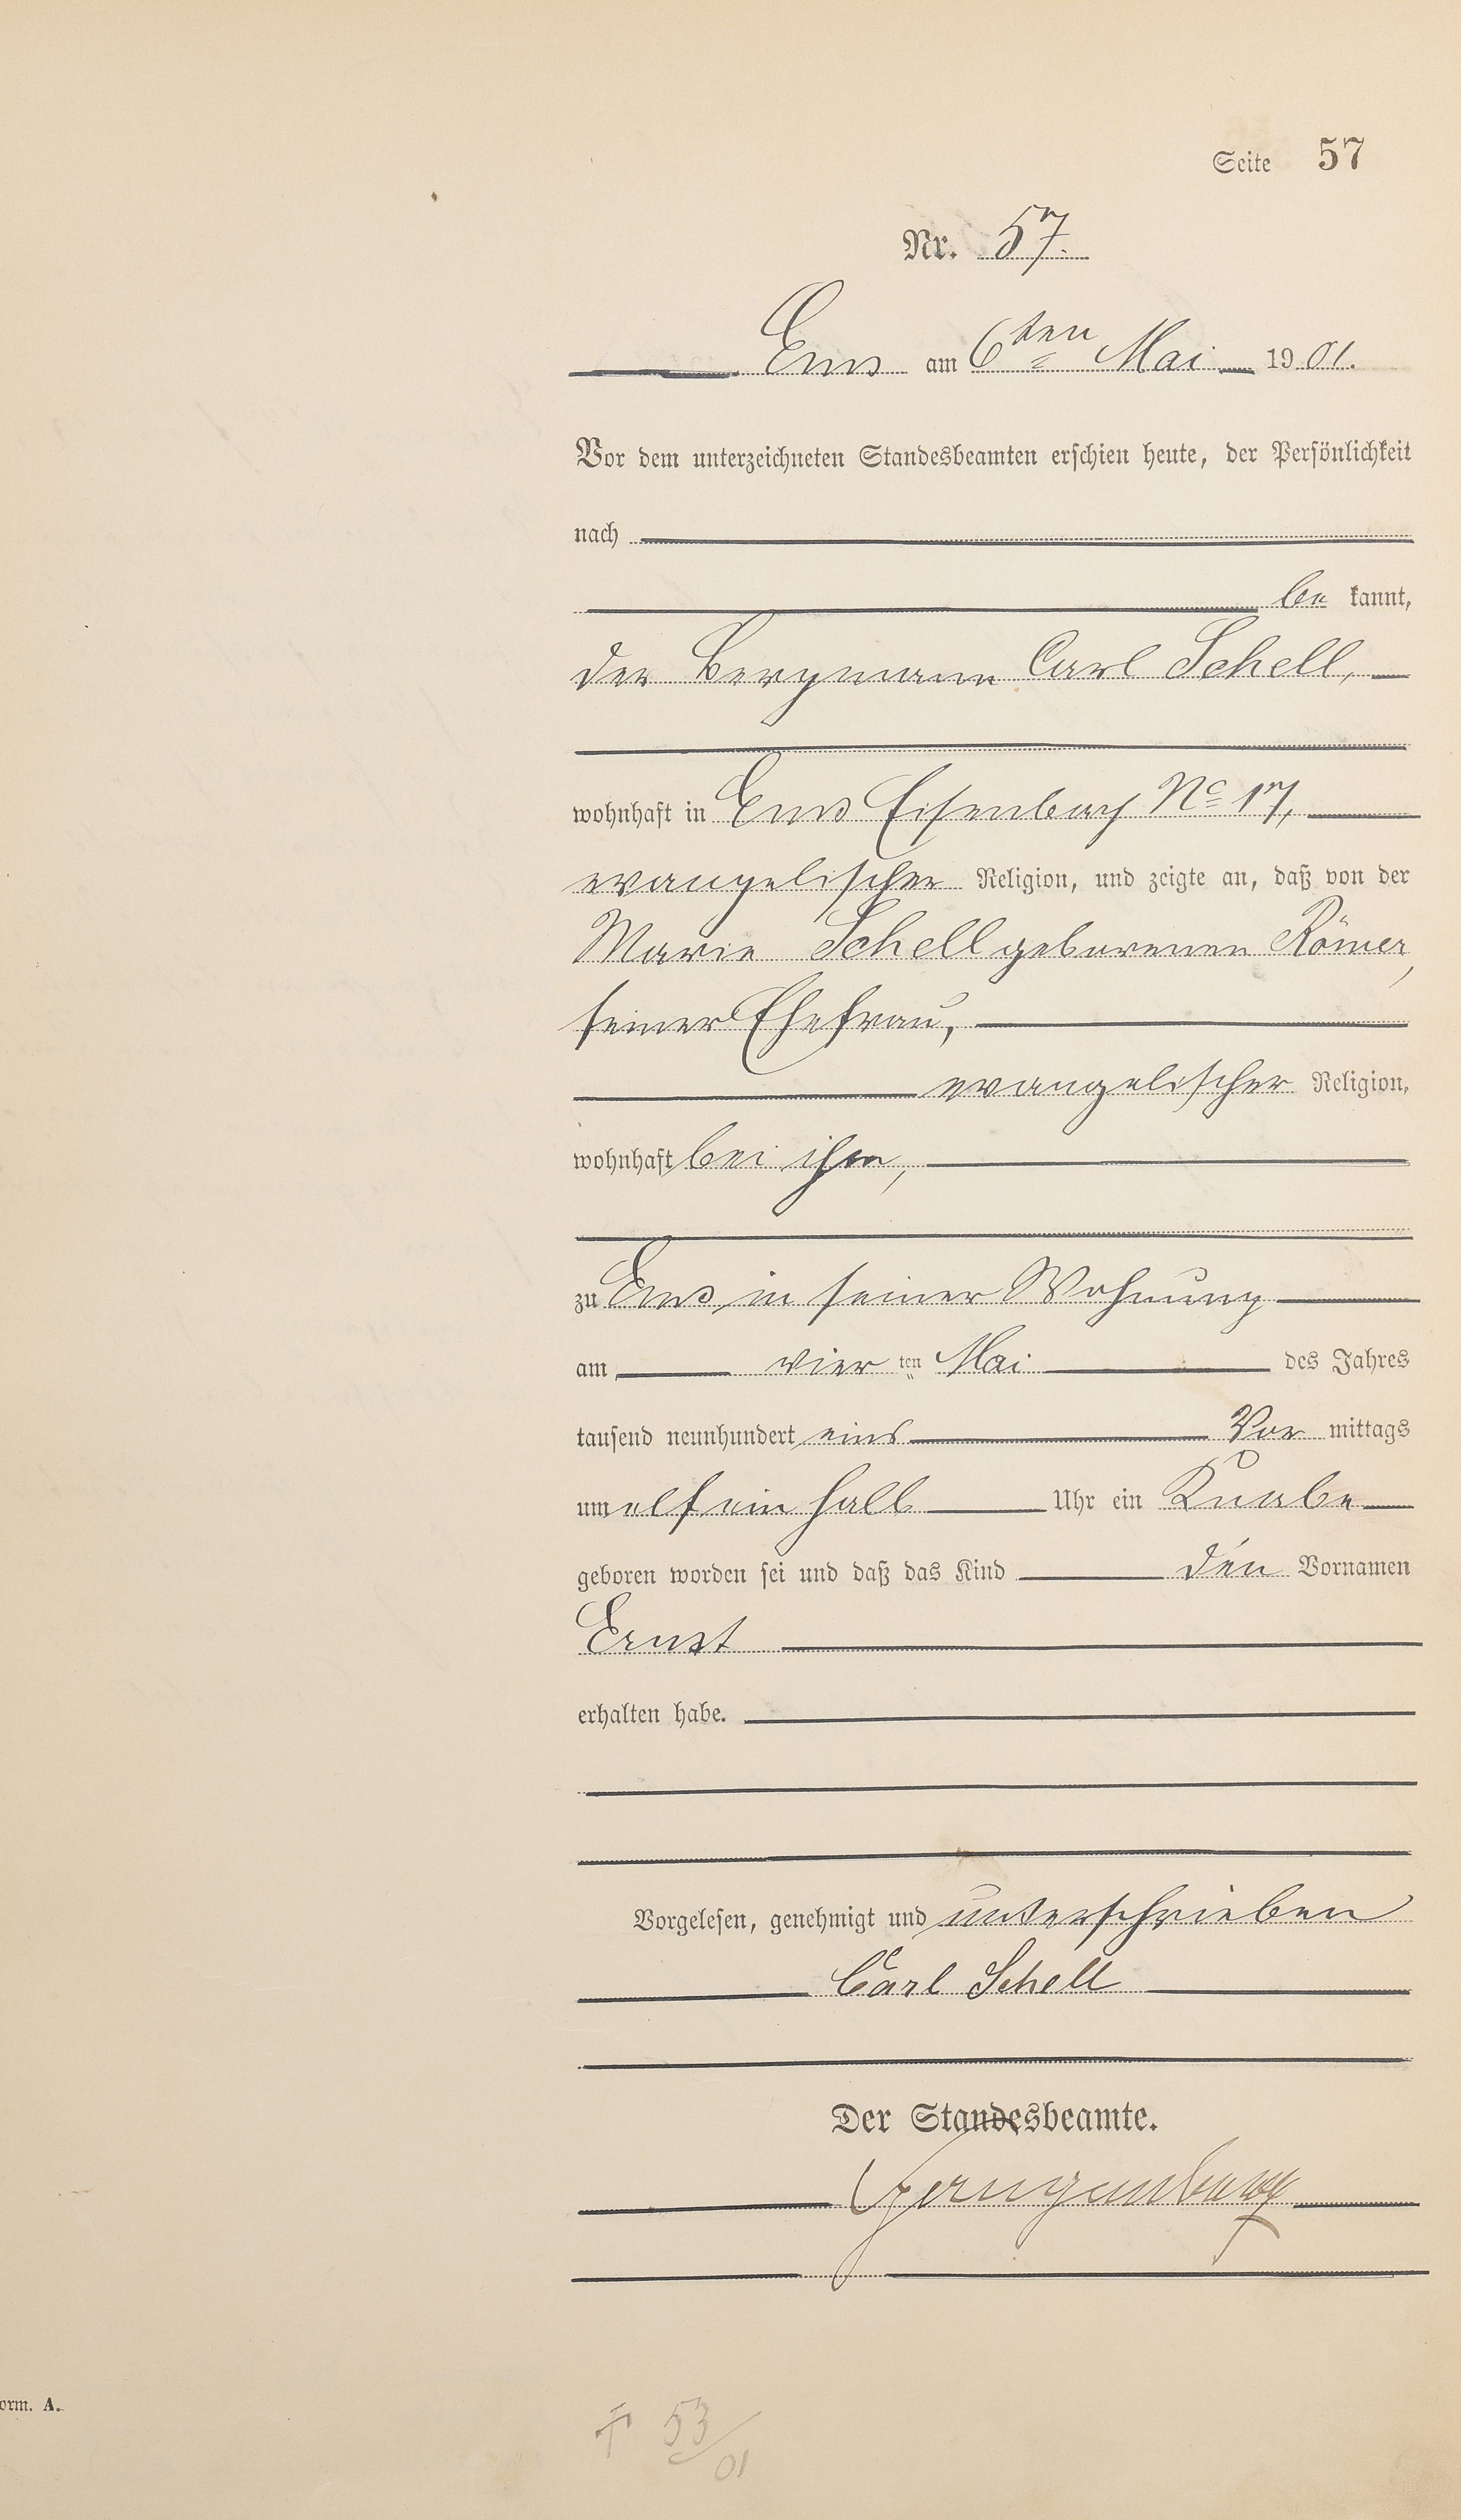 Seite 57
Nr. 57.
Ems am 6ten Mai 1901.
Vor dem unterzeichneten Standesbeamten erschien heute, der Persönlichkeit
nach
be kannt,
der Bergmann Carl Schell,
wohnhaft in Ems Eisenbach No 17,
evangelischer Religion, und zeigte an, daß von der
Marie Schell geborenen Römer,
seiner Ehefrau,
evangelischer Religion,
wohnhaft bei ihm,
zu Ems in seiner Wohnung
am vier ten Mai des Jahres
tausend neunhundert eins Vor mittags
um elf ein halb Uhr ein Knabe
geboren worden sei und daß das Kind den Vornamen
Ernst
erhalten habe.
Vorgelesen, genehmigt und unterschrieben
Carl Schell
Der Standesbeamte.
orm. A.
† 53/01